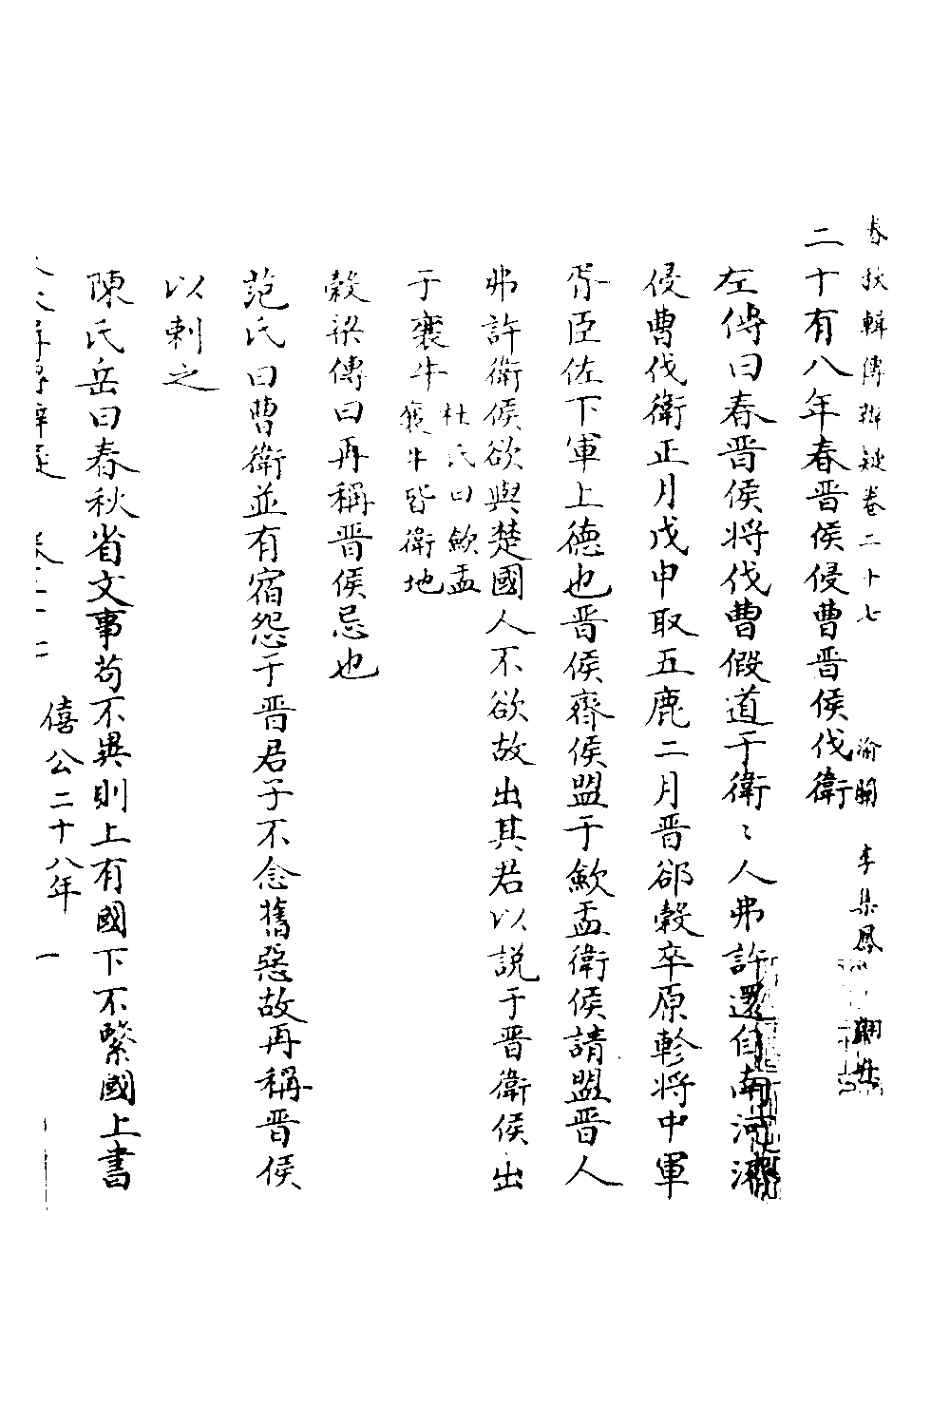 春秋輯傳辨疑卷二十七 渝關 李集鳳 翽升
二十有八年春晋侯侵曹晋侯伐衛
左傳曰春晋侯将伐曹假道于衛〻人弗許還自南河濟
侵曹伐衛正月戊申取五鹿二月晋郤縠卒原軫将中軍
胥臣佐下軍上德也晋侯齊侯盟于歛盂衛侯請盟晋人
弗許衛侯欲與楚國人不欲故出其君以説于晋衛侯出
于襄牛
杜氏曰歛盂
襄牛皆衛地
榖梁傳曰再稱晋侯忌也
范氏曰曹衛並有宿怨于晋君子不念舊惡故再稱晋侯
以刺之
陳氏岳曰春秋省文事苟不異則上有國下不繫國上書
僖公二十八年 一